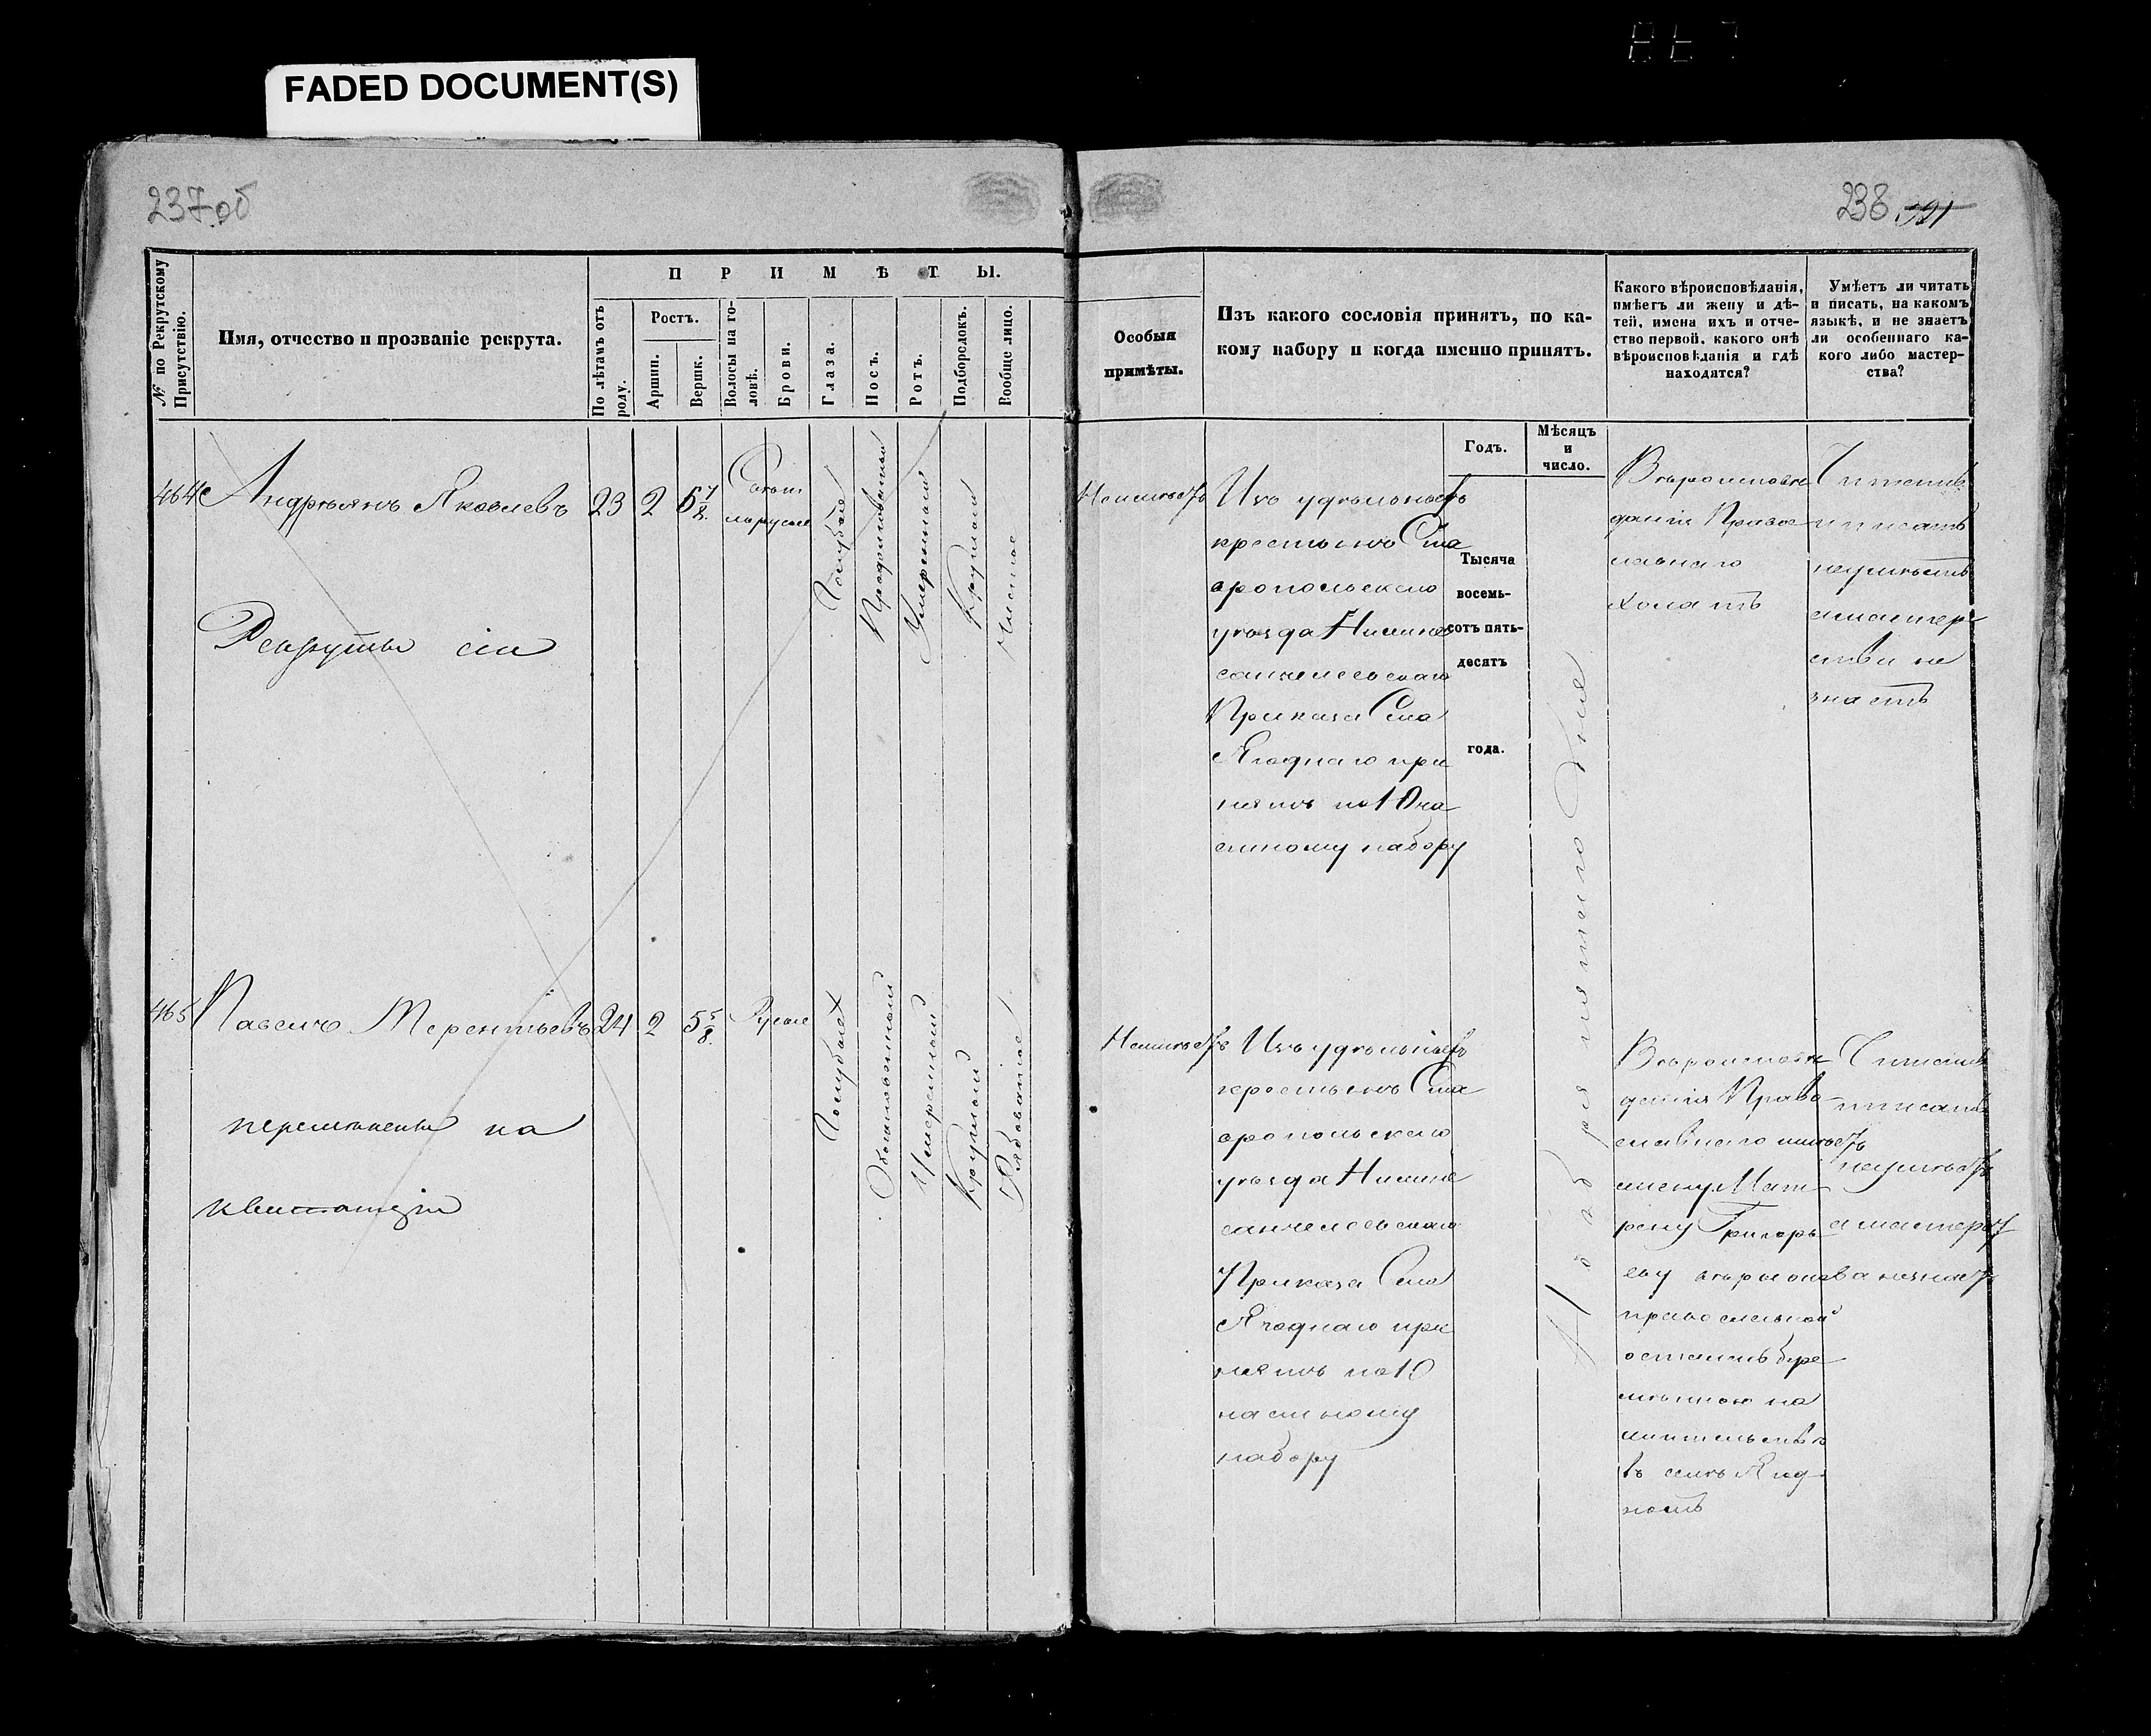 FADED DOCUMENT(S)
237об
238
№ по Рекрутскому Присутствію.
Имя, отчество и прозваніе рекрута.
ПРИМѢТЫ.
По лѣтамъ отъ роду.
Ростъ.
Аршин.
Вершк.
Волосы на головѣ.
Брови.
Глаза.
Носъ.
Ротъ.
Подбородокъ.
Вообще лицо.
Особыя
примѣты.
Изъ какого сословія принятъ, по ка-
кому набору и когда именно принятъ.
Какого вѣроисповѣданія,
имѣетъ ли жену и дѣ-
тей, имена ихъ и отче-
ство первой, какого онѣ
вѣроисповѣданія и гдѣ
находятся?
Умѣетъ ли читать
и писать, на какомъ
языкѣ, и не знаетъ
ли особеннаго ка-
кого либо мастер-
ства?
Годъ.
Мѣсяцъ
и
число.
464
Андреянъ Яковлевъ
23
2
5 7/8
Свѣт
лорусые
Голубые
Умеренный
Круглый
Чистое
Рекруты сіи
Неимѣетъ
Изъ удѣльныхъ
крестьянъ Ста
вропольскаго
уѣзда Нижне
санчелеевскаго
Приказа Села
Ягоднаго при
нятъ по 10 ча
стному набору
Тысяча
восемь-
сотъ пять-
десятъ
года.
Ноября пятого дня
Вѣроисповѣ
данія Право
славнаго
холостъ
Читать
и писать
неумѣетъ
а мастер
ства не
знаетъ
465
Павелъ Терентьевъ
24
2
5 5/8
Русые
Голубые
Обыкновенный
Умеренный
Круглый
Рябоватое
перемѣнены на
квитанціи
Неимѣетъ
Изъ удѣльныхъ
крестьянъ Ста
вропольскаго
уѣзда Нижне
санчелеевскаго
Приказа Села
Ягоднаго при
нятъ по 10
частному
набору
Вѣроисповѣ
данія Право
славнаго имѣетъ
жену Мат
рену Григорь
еву вѣры она
православной
осталась бере
мѣнною на
жительствѣ
въ селѣ Ягод
номъ
Читать
и писать
неумѣетъ
а мастерст
ва незнаетъ